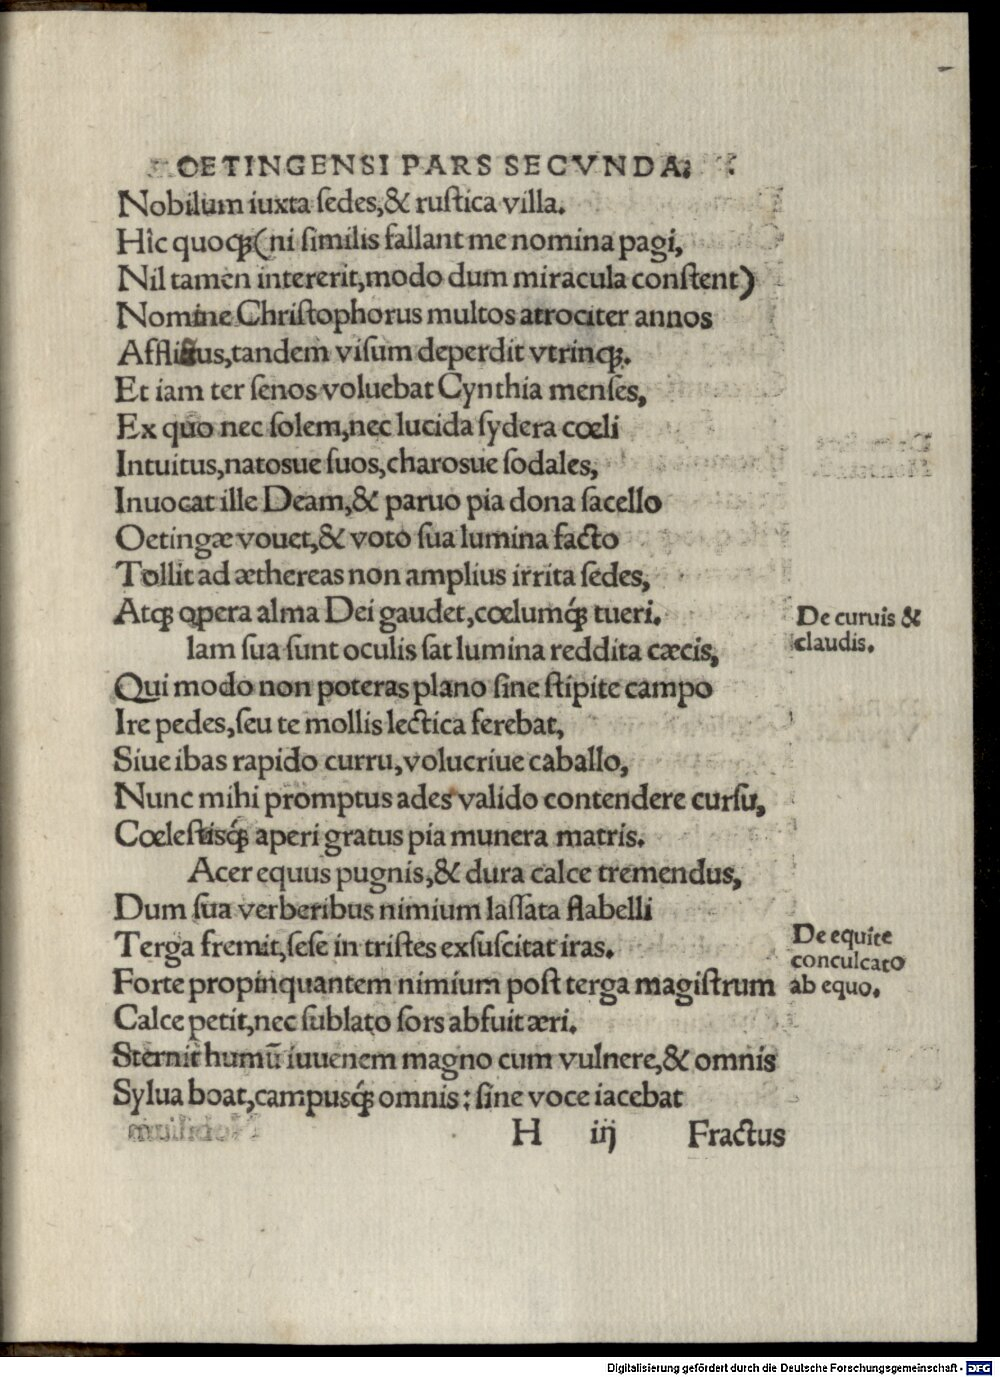 OETINGENSI PARS SECVNDA.
Nobilum iuxta ſedes,& ruſtica villa.
Hîc quoqꝫ(ni ſimilis fallant me nomina pagi,
Nil tamen intererit,modo dum miracula conſtent)
Nomine Chriſtophorus multos atrociter annos
Afflictus,tandem viſum deperdit vtrinqꝫ.
Et iam ter ſenos voluebat Cynthia menſes,
Ex quo nec ſolem,nec lucida ſydera cœli
Intuitus,natosue ſuos,charosue ſodales,
Inuocat ille Deam,& paruo pia dona ſacello
Oetingæ vouet,& voto ſua lumina facto
Tollit ad æthereas non amplius irrita ſedes,
Atqꝫ opera alma Dei gaudet,cœlumqꝫ́ tueri.
De curuis &
claudis.
Iam ſua ſunt oculis ſat lumina reddita cæcis,
Qui modo non poteras plano ſine ſtipite campo
Ire pedes,ſeu te mollis lectica ferebat,
Siue ibas rapido curru,volucriue caballo,
Nunc mihi promptus ades valido contendere curſu,
Cœleſtisqꝫ́ aperi gratus pia munera matris.
Acer equus pugnis,& dura calce tremendus,
Dum ſua verberibus nimium laſſata flabelli
Terga fremit,ſeſe in triſtes exſuſcitat iras.
De equite
conculcato
ab equo.
Forte propinquantem nimium poſt terga magiſtrum
Calce petit,nec ſublato ſors abfuit æri.
Sternit humū iuuenem magno cum vulnere,& omnis
Sylua boat,campusqꝫ́ omnis: ſine voce iacebat
H iij Fractus
Digitalisierung gefördert durch die Deutsche Forschungsgemeinschaft - DFG